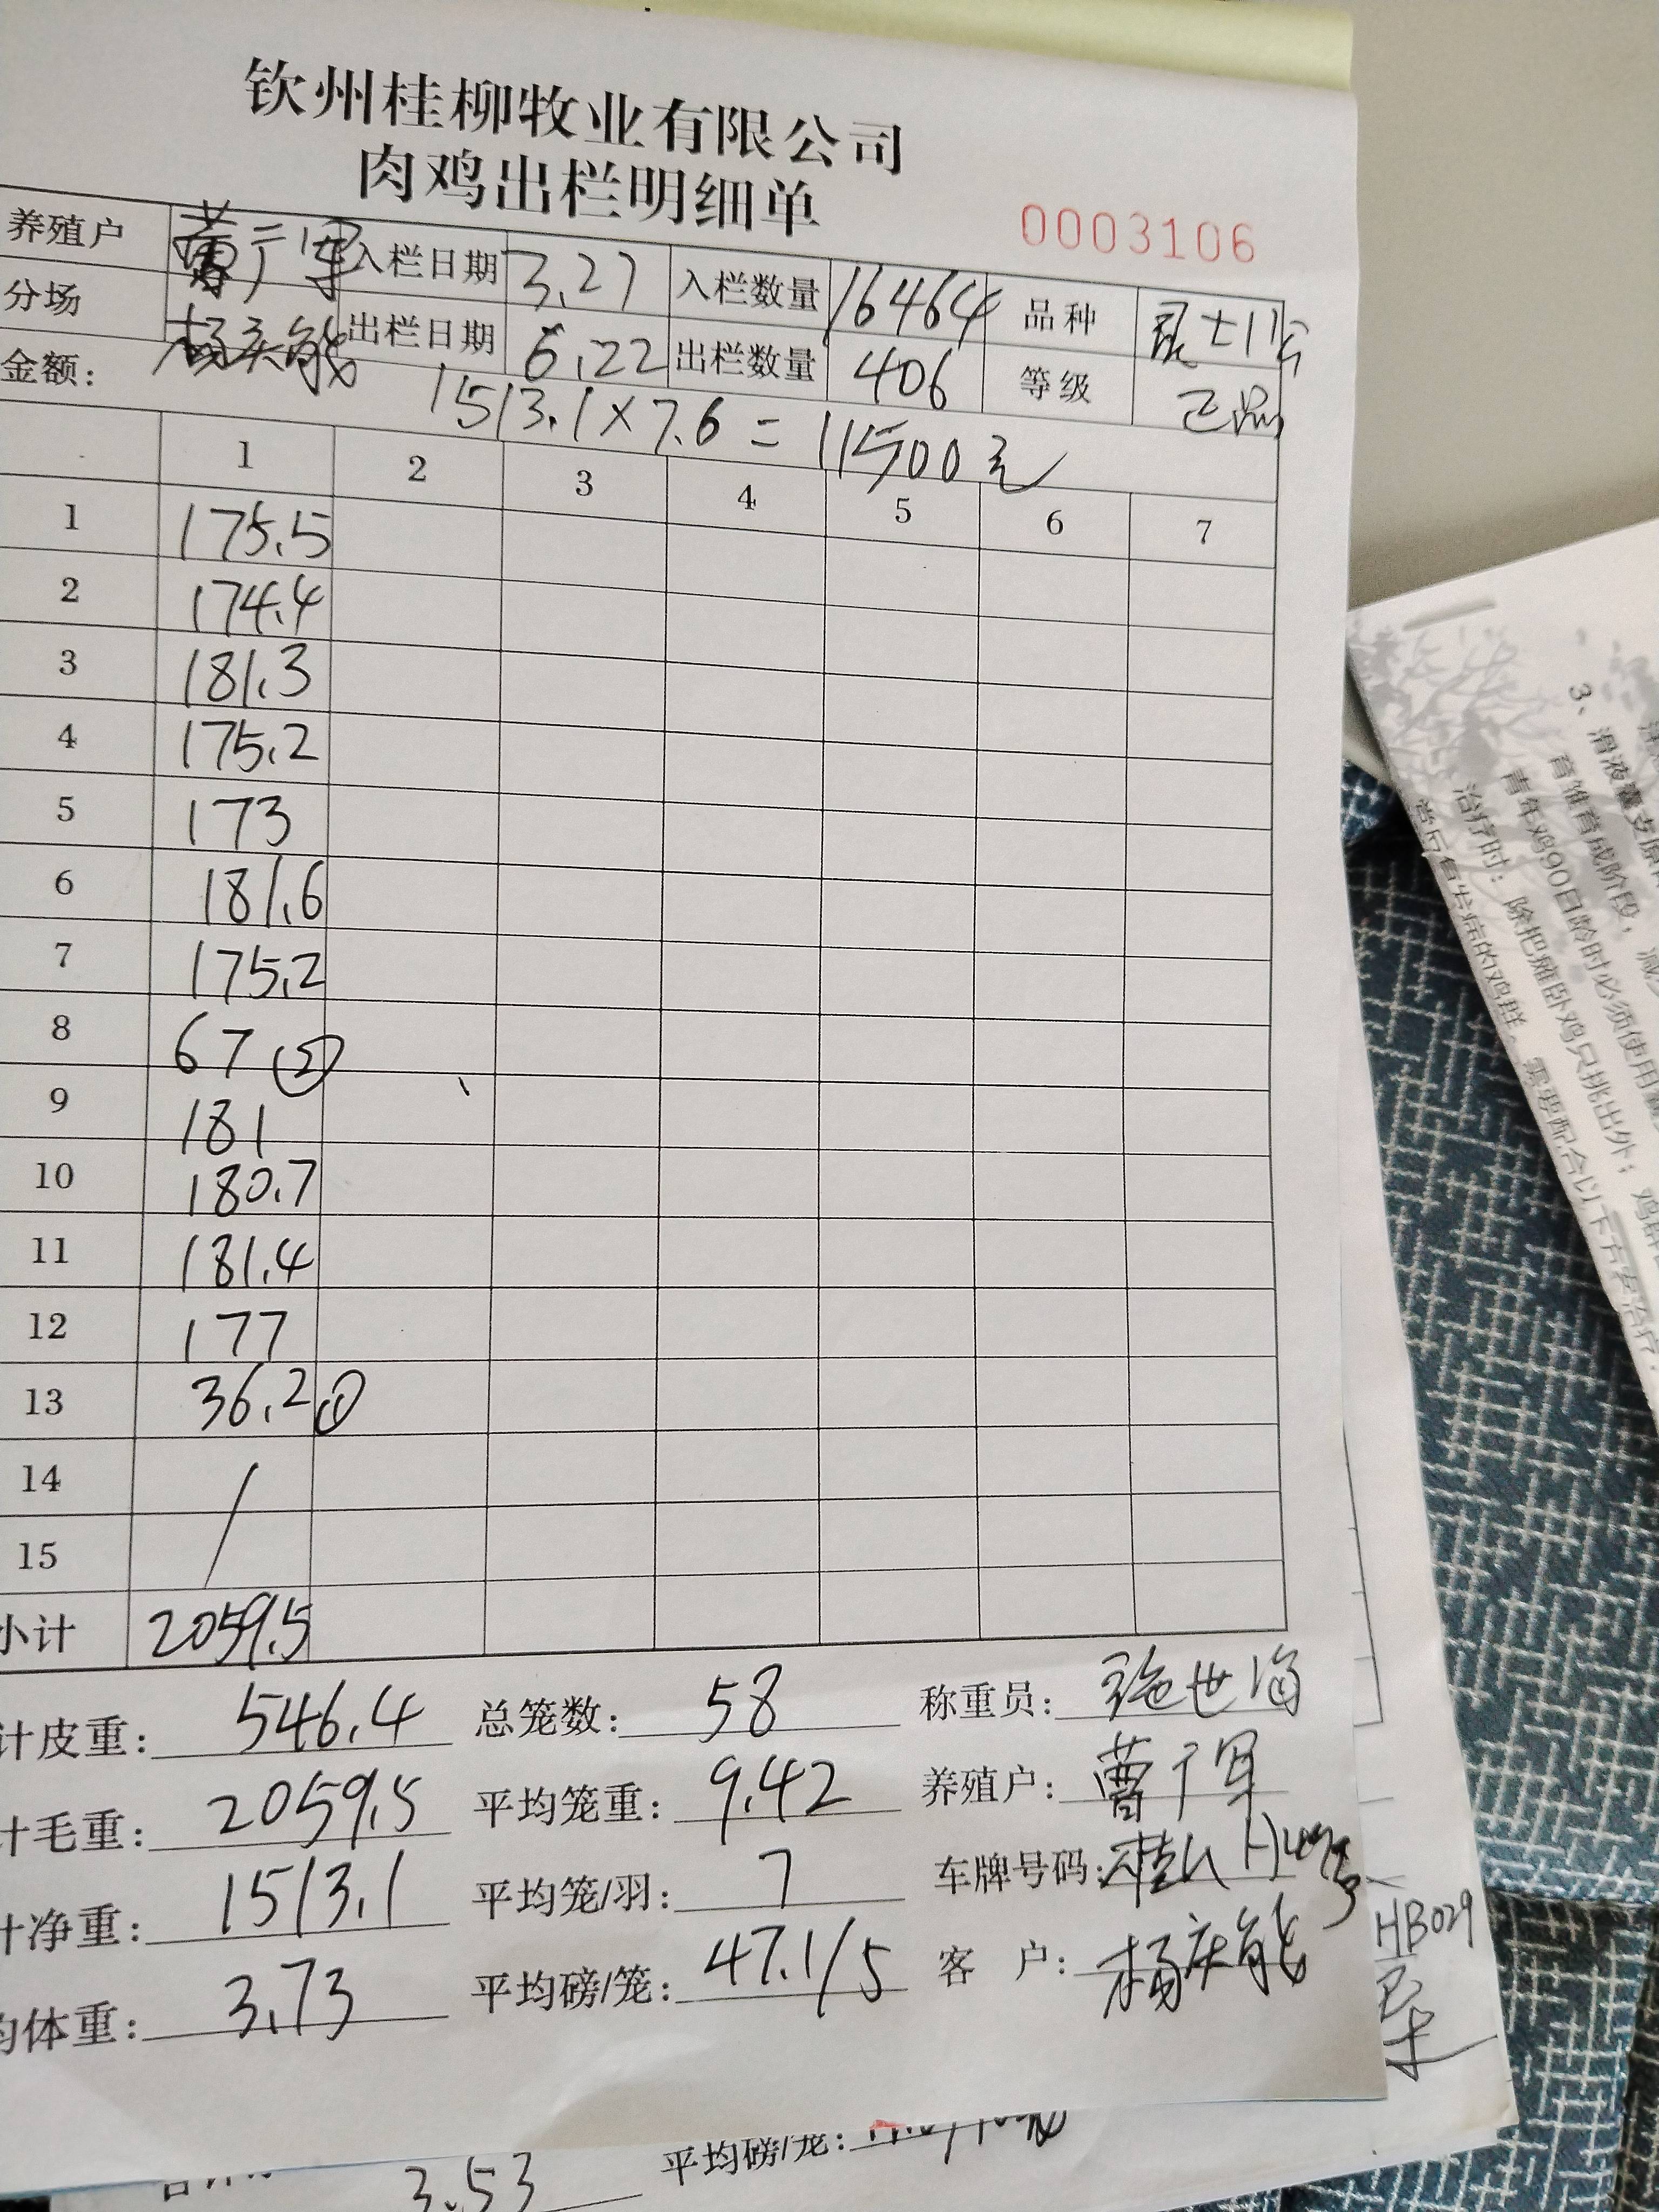 钦州桂柳牧业有限公司
肉鸡出栏明细单
0003106
养殖户 曹广军 入栏日期 3.27 入栏数量 16464 品种
分场 杨庆能 出栏日期 6.22 出栏数量 406 等级 正品
金额: 1513.1×7.6=11500元
1 2 3 4 5 6 7
1 175.5
2 174.4
3 181.3
4 175.2
5 173
6 181.6
7 175.2
8 67 ②
9 181
10 180.7
11 181.4
12 177
13 36.2 ①
14
15
小计 2059.5
计皮重: 546.4 总笼数: 58 称重员:
计毛重: 2059.5 平均笼重: 9.42 养殖户: 曹广军
计净重: 1513.1 平均笼/羽: 7 车牌号码:
均体重: 3.73 平均磅/笼: 47.1/5 客 户: 杨庆能
HB029
3.53 平均磅/笼:
3、滑液囊支原
育雏育成阶段,
青年鸡90日龄时必须使用
治疗时:除把瘫卧鸡只挑出外;鸡群
需要配合以下方案治疗: